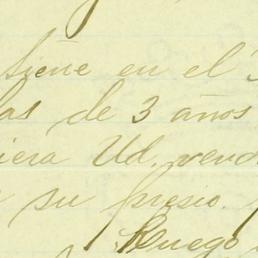 tiene en el
las de 3 años
iera Ud. vend
su presio.
Ruego